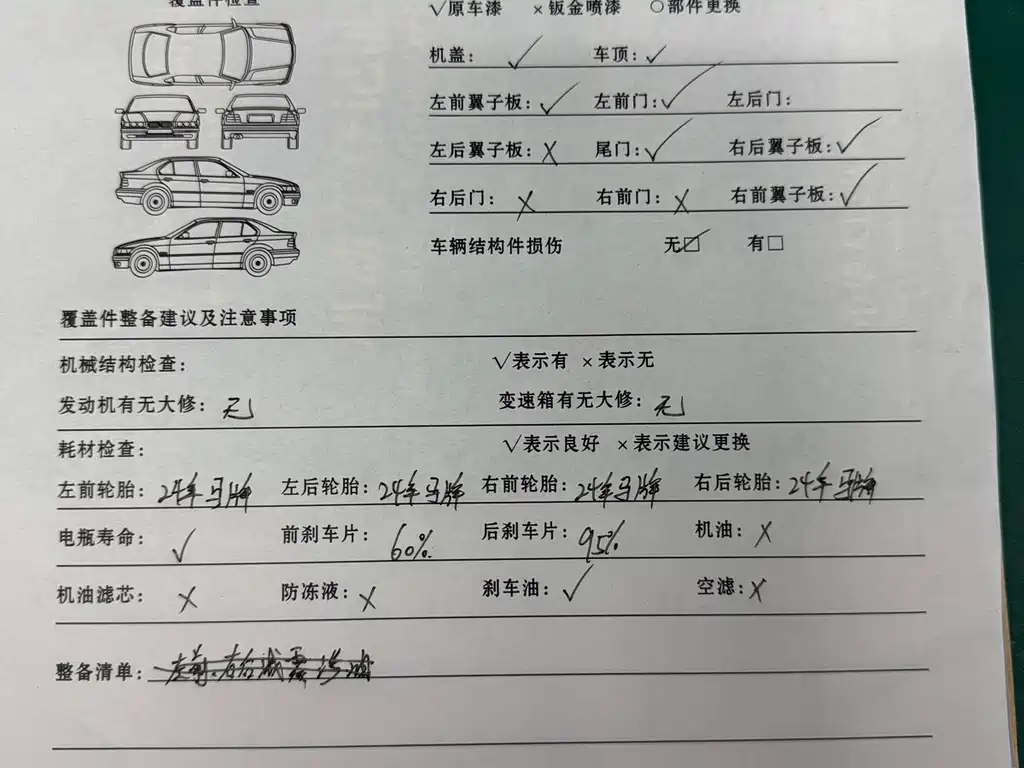 覆盖件检查
√原车漆 ×钣金喷漆 ○部件更换
机盖：√ 车顶：√
左前翼子板：√ 左前门：√ 左后门：
左后翼子板：× 尾门：√ 右后翼子板：√
右后门：× 右前门：× 右前翼子板：√
车辆结构件损伤 无☑ 有□
覆盖件整备建议及注意事项
机械结构检查： √表示有 ×表示无
发动机有无大修：无 变速箱有无大修：无
耗材检查： √表示良好 ×表示建议更换
左前轮胎：24年马牌 左后轮胎：24年马牌 右前轮胎：24年马牌 右后轮胎：24年马牌
电瓶寿命：√ 前刹车片：60% 后刹车片：95% 机油：×
机油滤芯：× 防冻液：× 刹车油：√ 空滤：×
整备清单：左前、右后减震